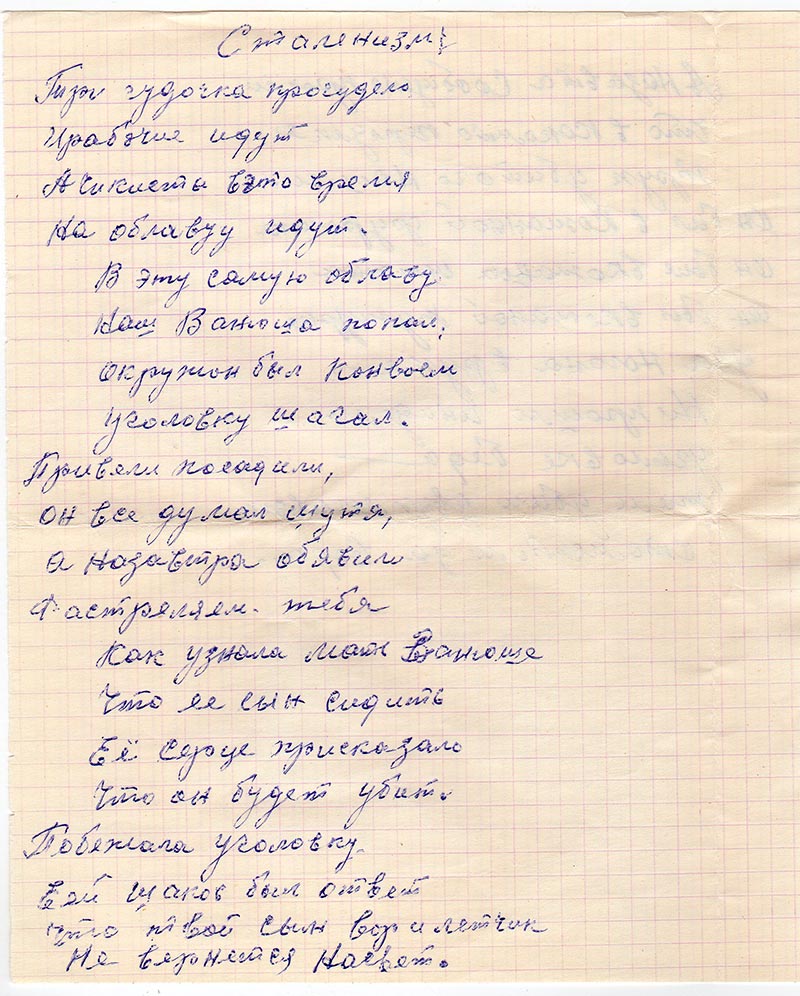 Сталенизм
Три гудочка прогудело
Ирабочие идут
А чикисты вэто время
На облавуу идут.
В эту самую облаву
Наш Ванюша попал,
окружон был Конвоем
уголовку шагал.
Привели посадили,
он все думал шутя,
а Назавтра обявили
Фастреляем. тебя
Как узнала мать Ванюше
Что ее сын сидить
Её серце присказало
Что он будет убит.
Побежала уголовку.
Ей шаков был ответ
что твой сын вор и летчик
Не вернется Насвет.